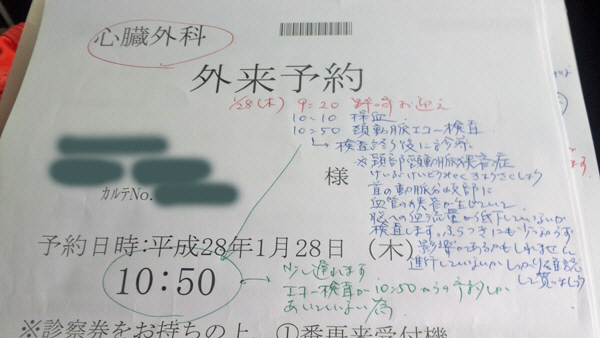 心臓外科
外来予約
1/28(木) 9:20 野崎お迎え
10:10 採血
10:50 頚動脈エコー検査
検査終了後に診察
※頚部頚動脈狭窄症
けいぶけいどうみゃくきょうさくしょう
首の動脈分岐部に
血管の狭窄が生じていて
脳への血流量が低下していないか
検査します。ふらつきにも
影響があるかもしれません
進行していないかしっかり確認
して貰いましょう
様
カルテNo.
予約日時:平成28年1月28日 (木)
10:50
少し遅れます
エコー検査が10:50からの予約しか
あいていない為
※診察券をお持ちの上、①番再来受付機